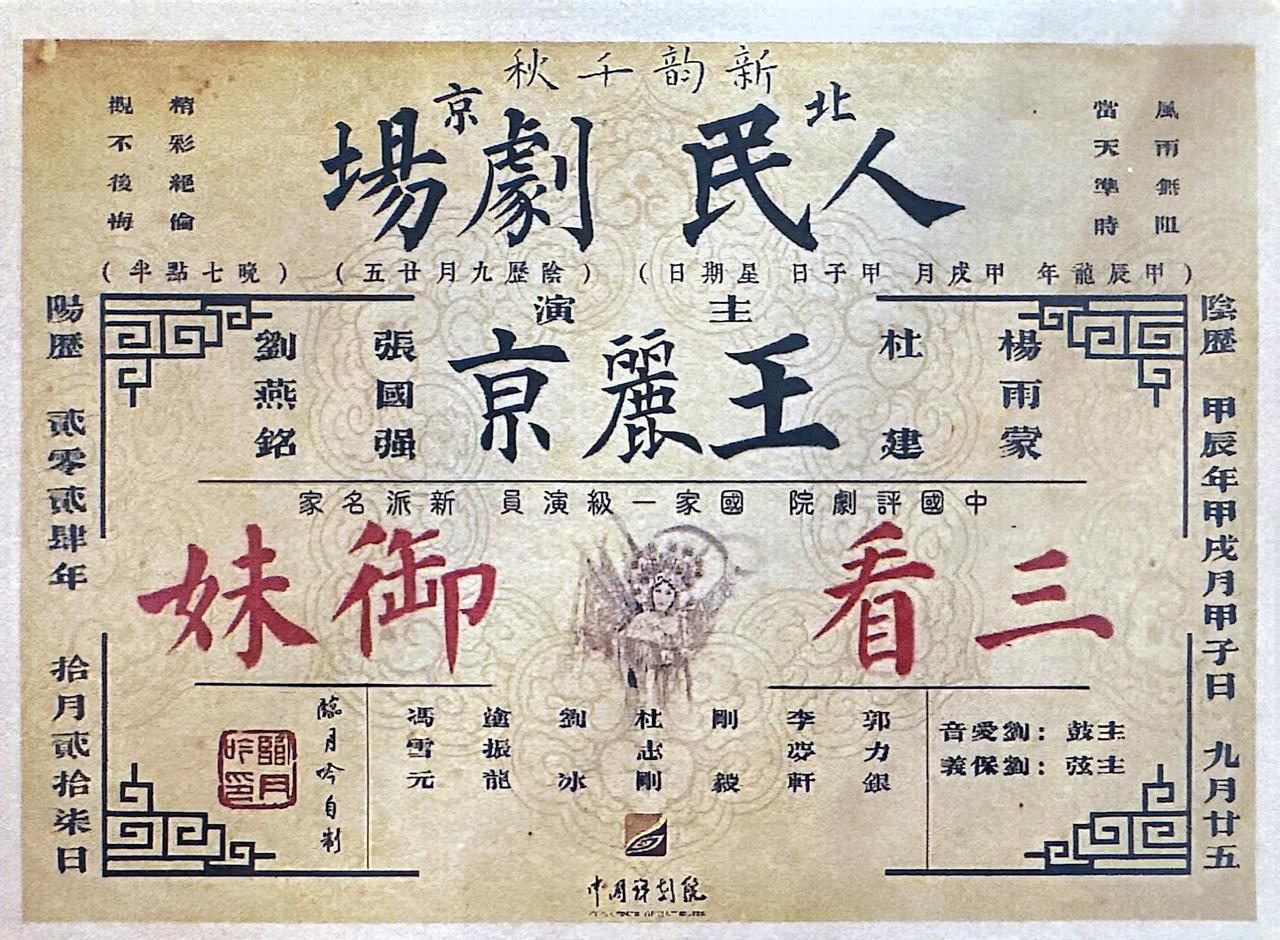 新韵千秋
北京
人民劇場
風雨無阻
當天準時
精彩絕倫
觀不後悔
(甲辰龍年 甲戌月 甲子日 星期日) (陰歷九月廿五) (晚七點半)
陰歷 甲辰年甲戌月甲子日 九月廿五
主演
楊雨蒙
杜建
王麗京
張國强
劉燕銘
中國評劇院 國家一級演員 新派名家
三看御妹
主鼓：劉愛音
主弦：劉保義
郭力銀
李夢軒
剛毅
杜志剛
劉冰
塗振龍
馮雪元
臨月吟自制
中国评剧院
陽歷 貳零貳肆年 拾月貳拾柒日